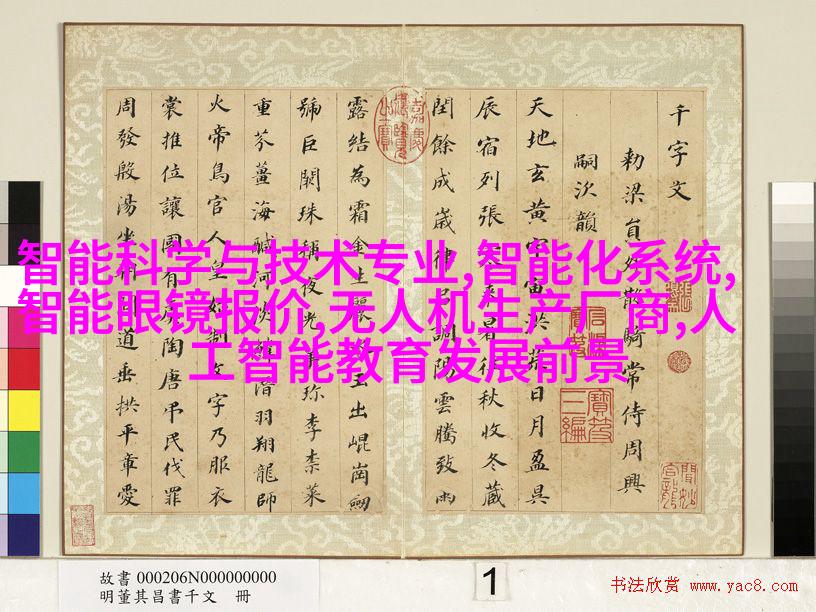 千字文
勅梁員外散騎常侍周興
嗣次韻
天地玄黃宇宙洪荒日月盈昃
辰宿列張寒來暑往秋收冬藏
閏餘成歲律呂調陽雲騰致雨
露結為霜金生麗水玉出崐崗劒
號巨闕珠稱夜光菓珍李柰菜
重芥薑海醎河淡鱗潛羽翔龍師
火帝鳥官人皇始制文字乃服衣
裳推位讓國有虞陶唐弔民伐罪
周發殷湯坐朝問道垂拱平章愛
智能科学与技术专业,智能化系统,
智能眼镜报价,无人机生产厂商,人
工智能教育发展前景
故書 000206N000000000
明董其昌書千文 冊
1
书法欣赏 www.yac8.com